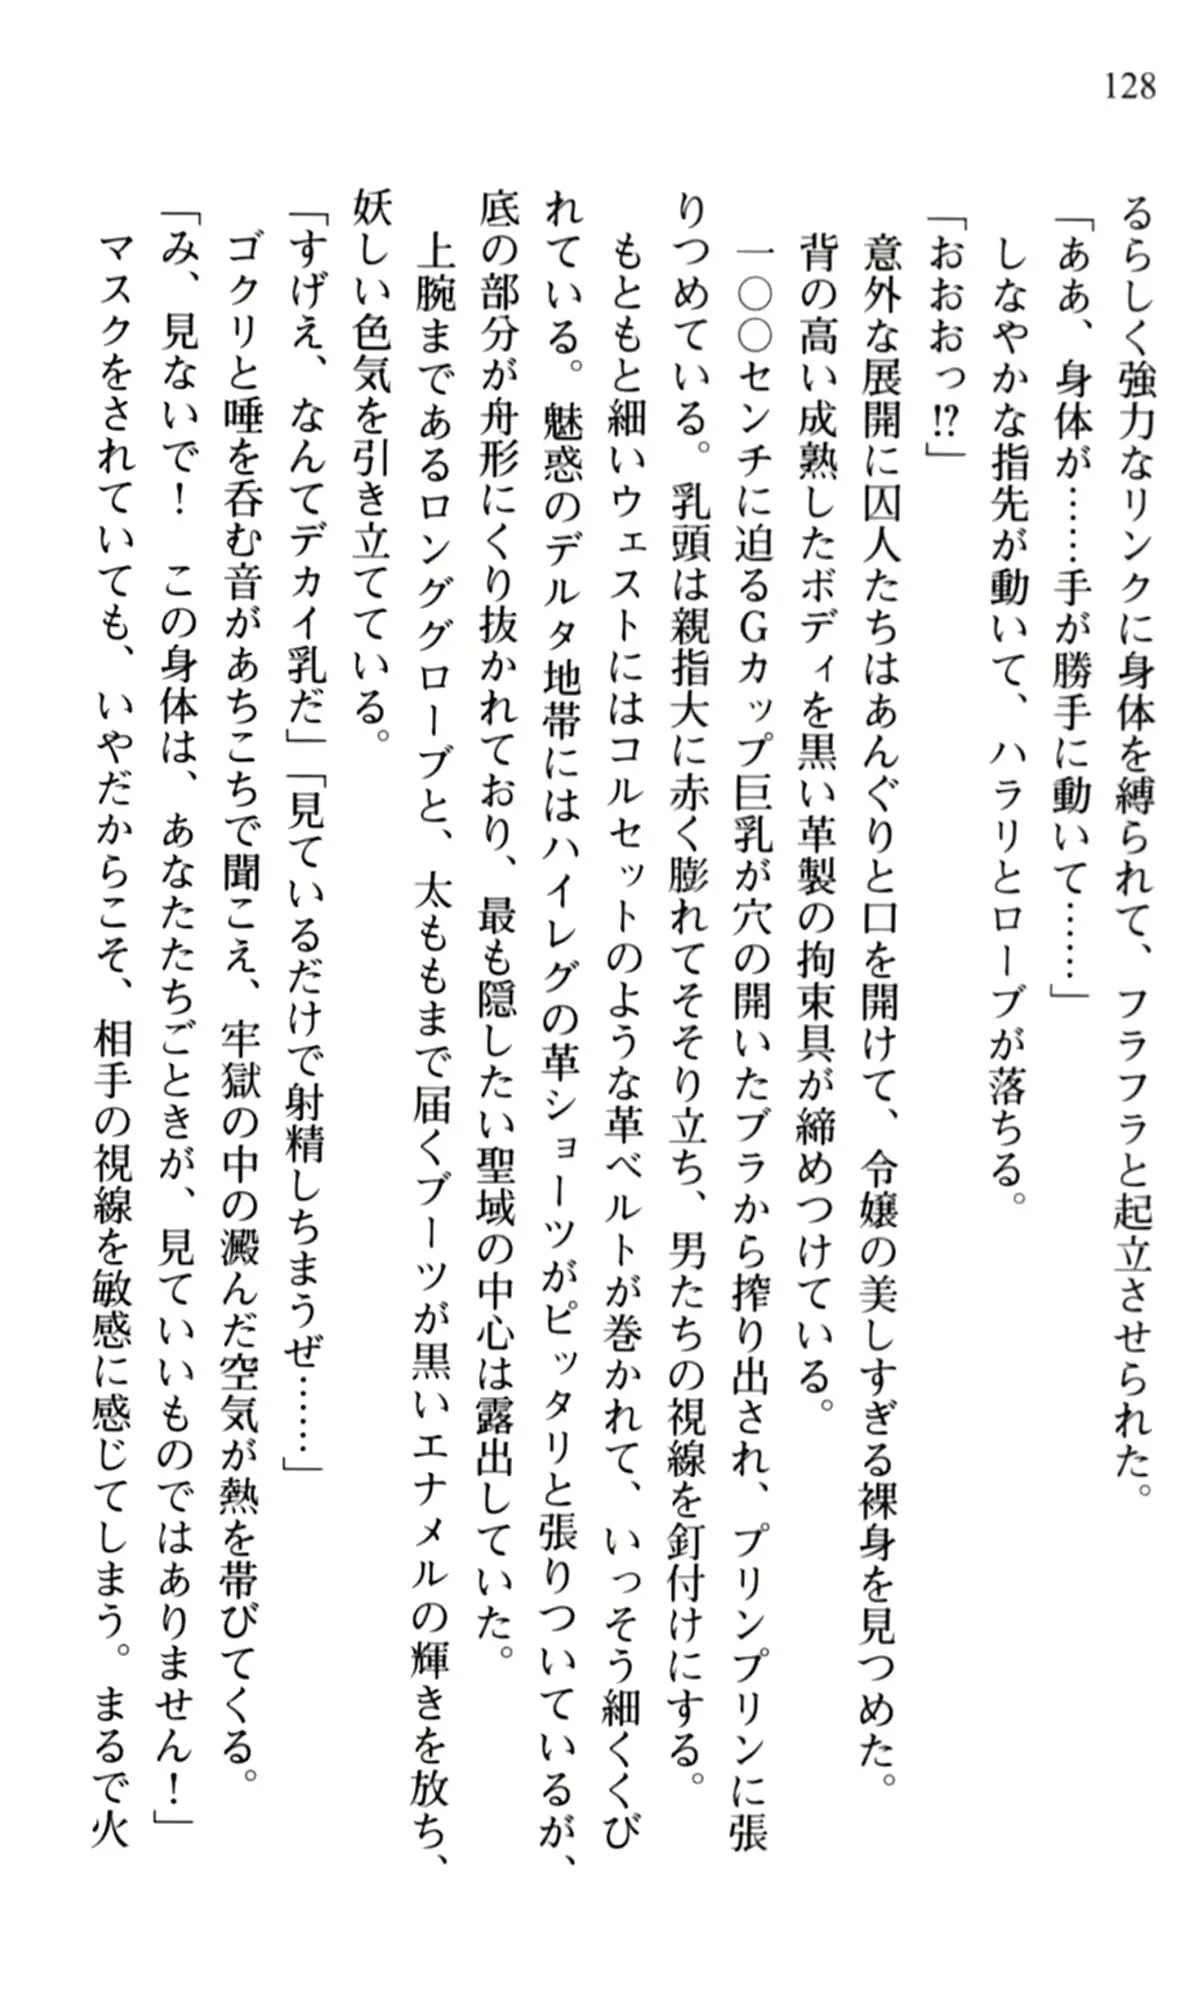 128
るらしく強力なリンクに身体を縛られて、フラフラと起立させられた。
「ああ、身体が……手が勝手に動いて……」
しなやかな指先が動いて、ハラリとローブが落ちる。
「おおおっ!?」
意外な展開に囚人たちはあんぐりと口を開けて、令嬢の美しすぎる裸身を見つめた。
背の高い成熟したボディを黒い革製の拘束具が締めつけている。
一〇〇センチに迫るGカップ巨乳が穴の開いたブラから搾り出され、プリンプリンに張
りつめている。乳頭は親指大に赤く膨れてそそり立ち、男たちの視線を釘付けにする。
もともと細いウェストにはコルセットのような革ベルトが巻かれて、いっそう細くくび
れている。魅惑のデルタ地帯にはハイレグの革ショーツがピッタリと張りついているが、
底の部分が舟形にくり抜かれており、最も隠したい聖域の中心は露出していた。
上腕まであるロンググローブと、太ももまで届くブーツが黒いエナメルの輝きを放ち、
妖しい色気を引き立てている。
「すげえ、なんてデカイ乳だ」「見ているだけで射精しちまうぜ……」
ゴクリと唾を呑む音があちこちで聞こえ、牢獄の中の澱んだ空気が熱を帯びてくる。
「み、見ないで！　この身体は、あなたたちごときが、見ていいものではありません！」
マスクをされていても、いやだからこそ、相手の視線を敏感に感じてしまう。まるで火